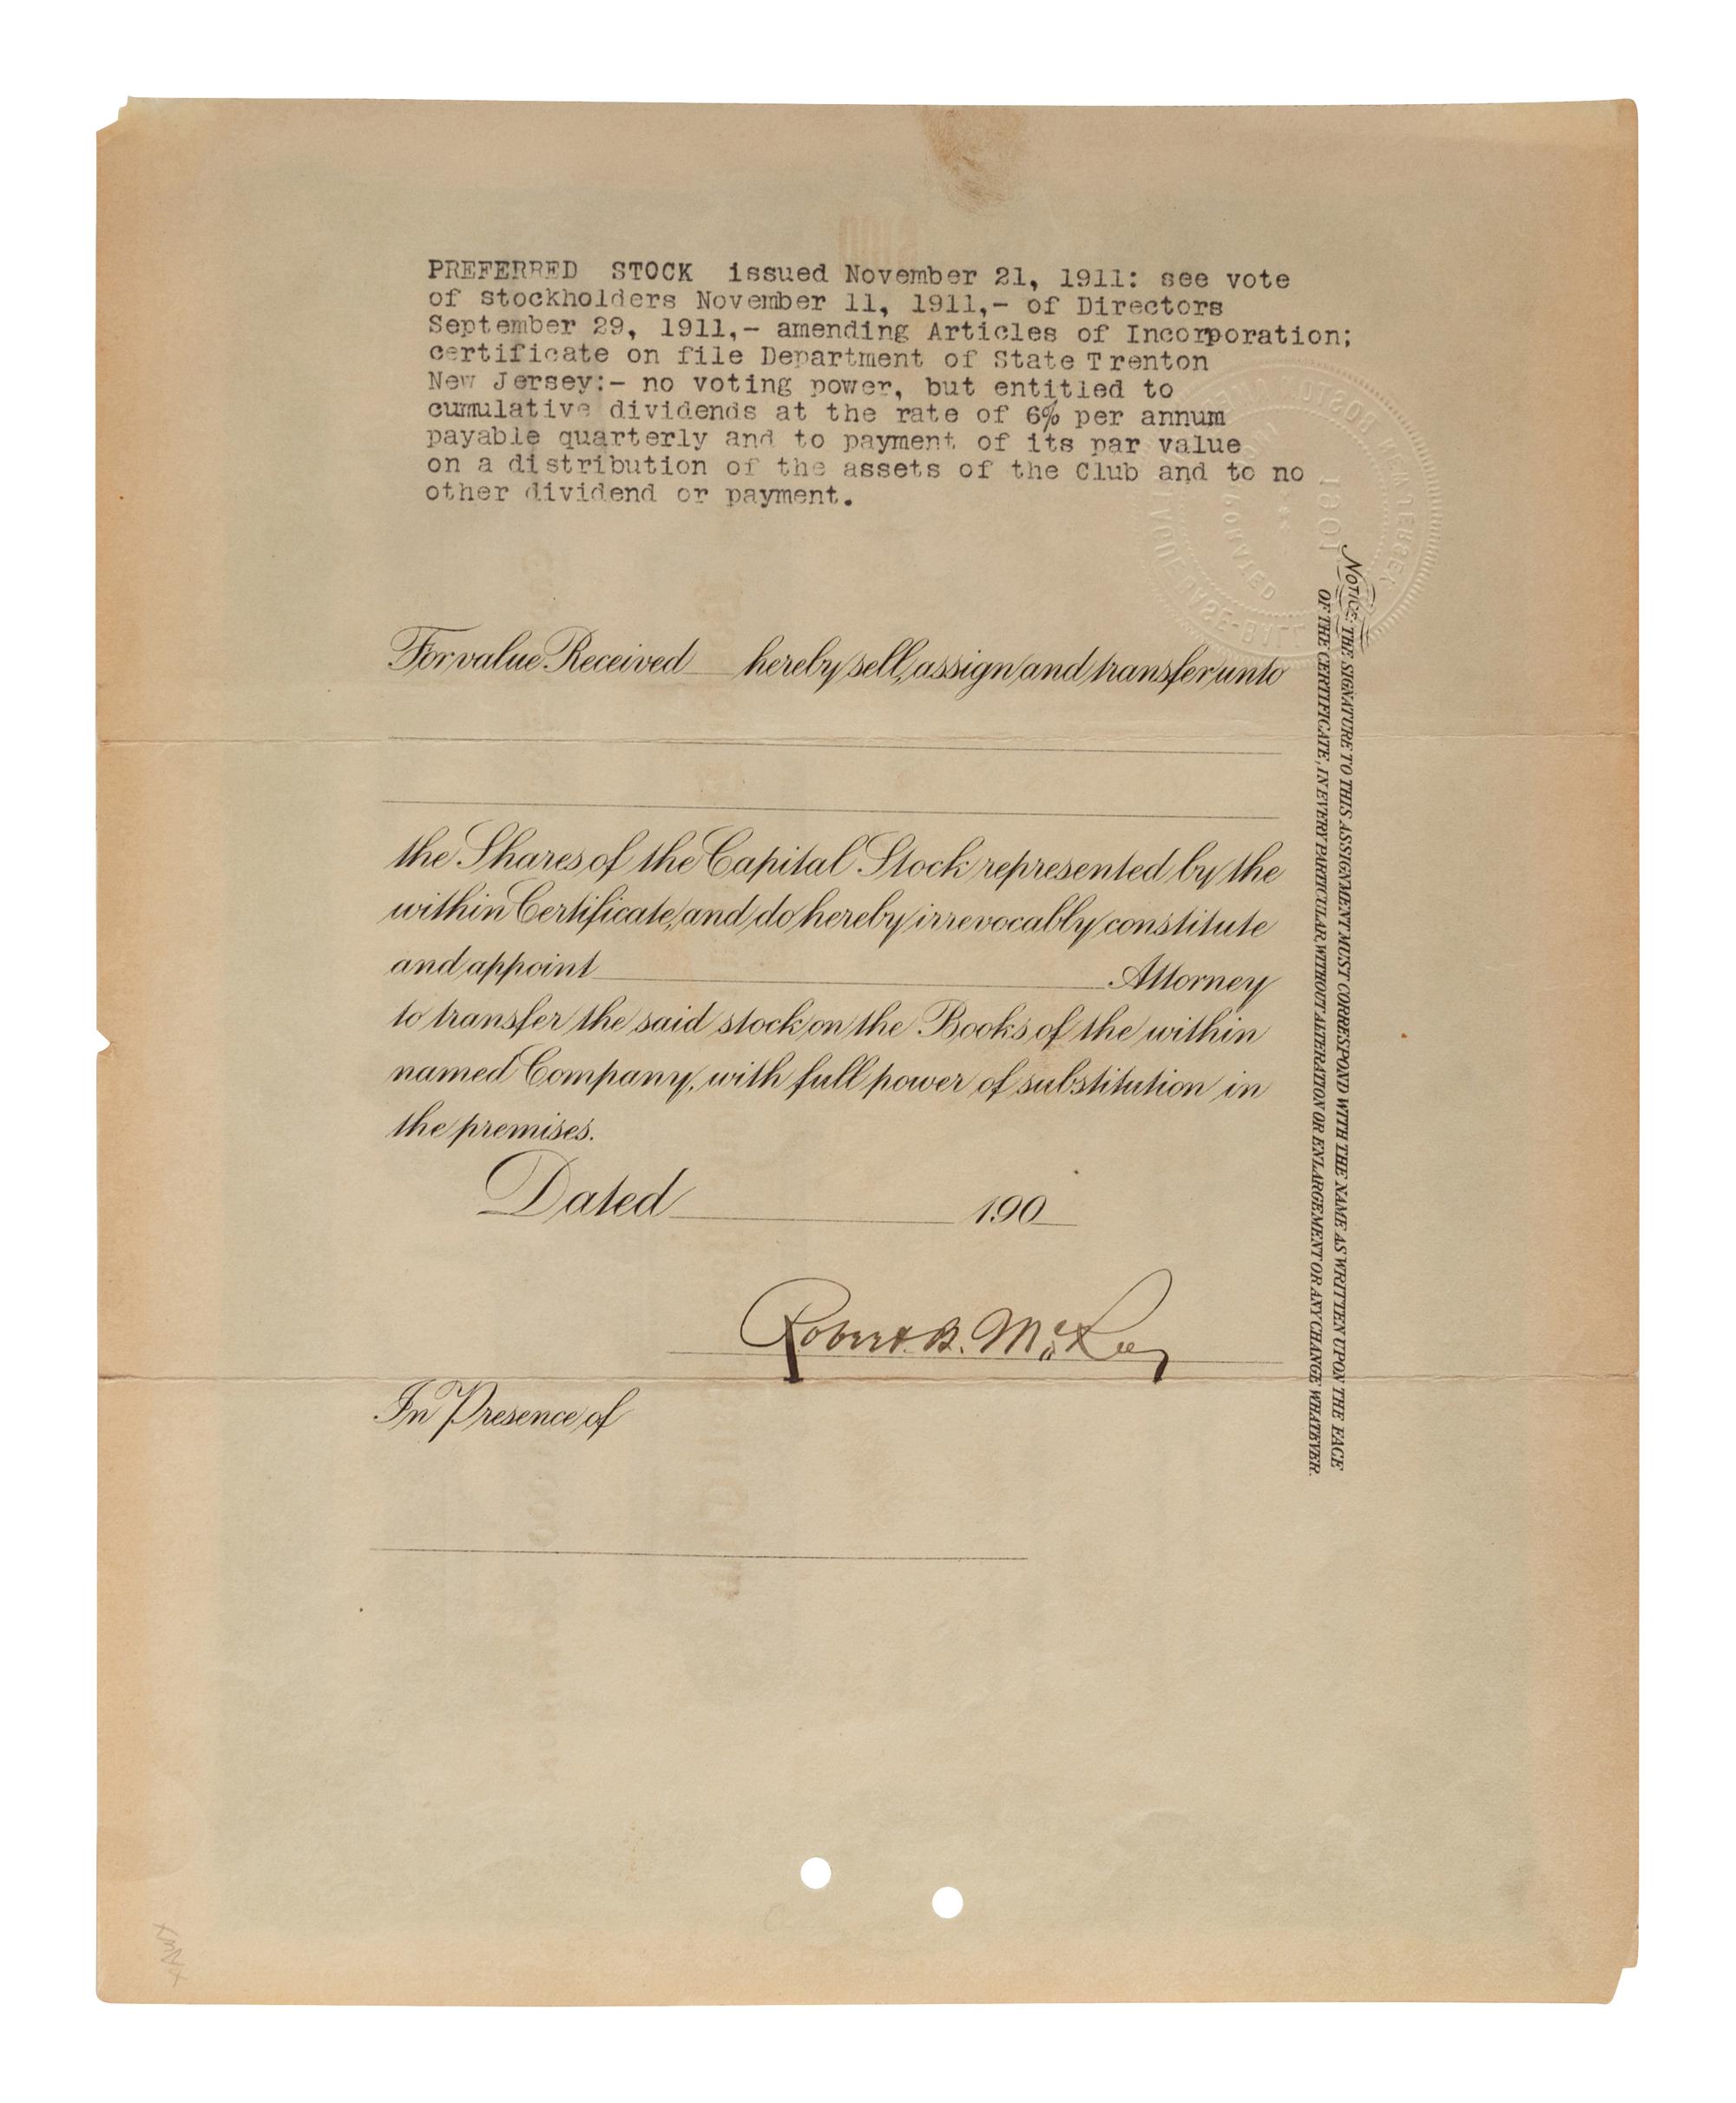 PREFERRED STOCK issued November 21, 1911: see vote
of stockholders November 11, 1911,- of Directors
September 29, 1911,- amending Articles of Incorporation;
certificate on file Department of State Trenton
New Jersey:- no voting power, but entitled to
cumulative dividends at the rate of 6% per annum
payable quarterly and to payment of its par value
on a distribution of the assets of the Club and to no
other dividend or payment.
1901
For value Received hereby sell, assign and transfer unto
the Shares of the Capital Stock represented by the
within Certificate, and do hereby irrevocably constitute
and appoint Attorney
to transfer the said stock on the Books of the within
named Company, with full power of substitution in
the premises.
Dated 190
Robert B. McRoy
In Presence of
NOTICE: THE SIGNATURE TO THIS ASSIGNMENT MUST CORRESPOND WITH THE NAME AS WRITTEN UPON THE FACE
OF THE CERTIFICATE, IN EVERY PARTICULAR, WITHOUT ALTERATION OR ENLARGEMENT OR ANY CHANGE WHATEVER.